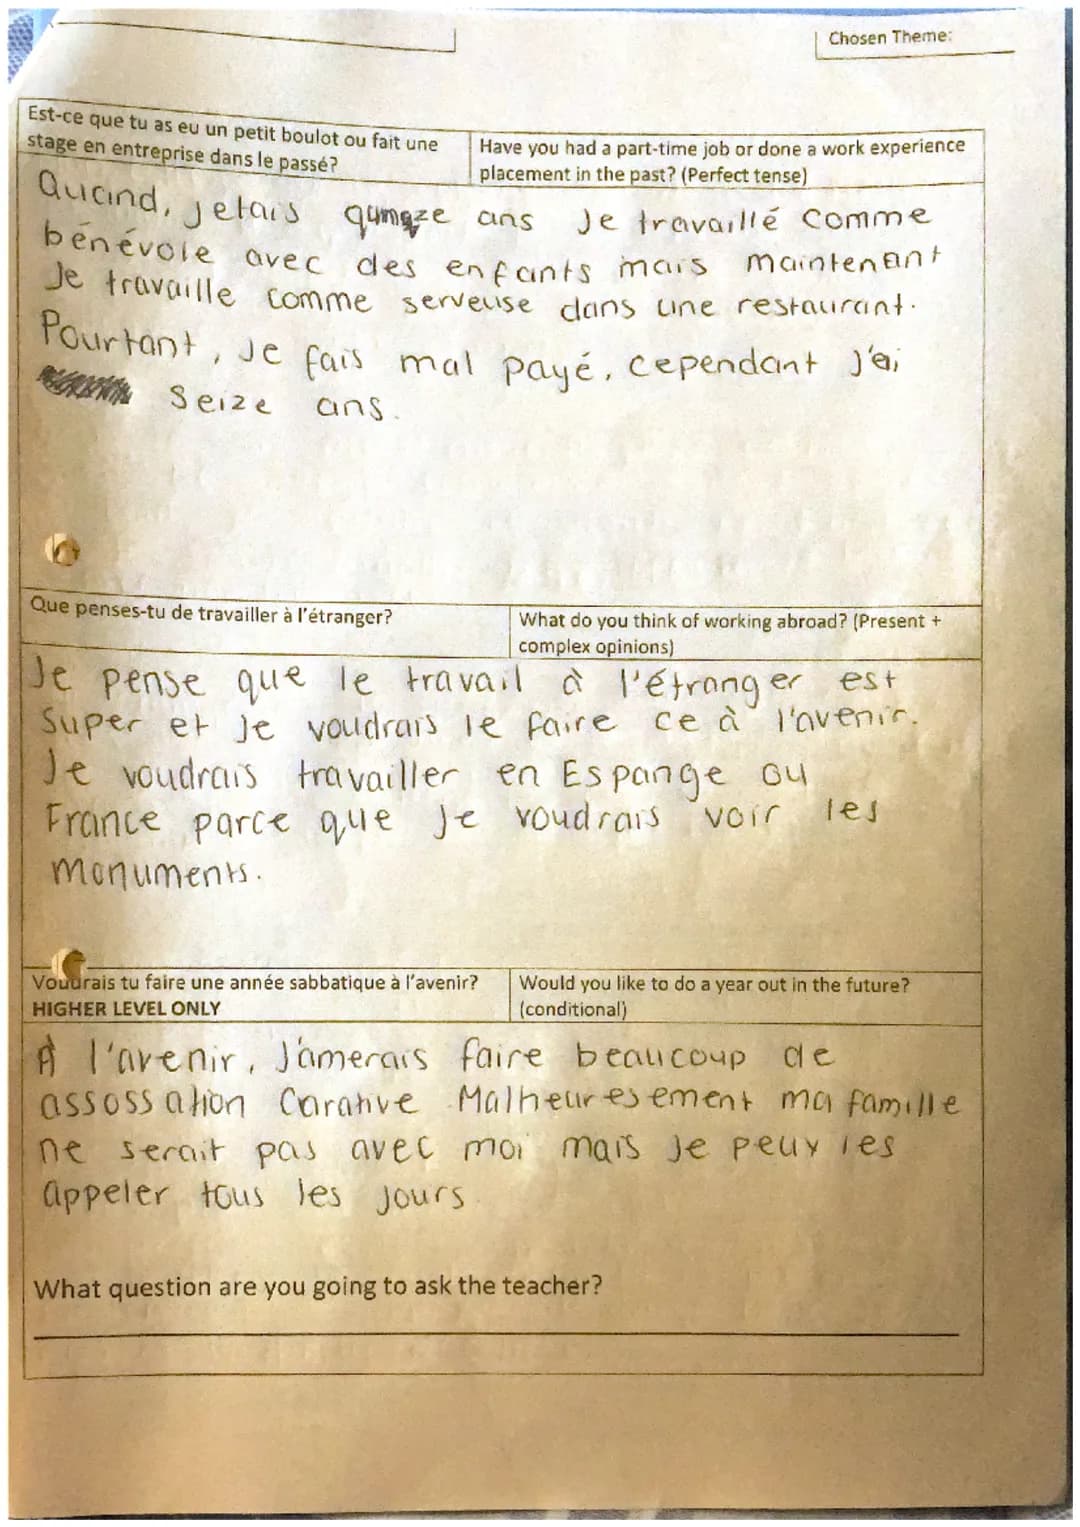 Chosen Theme:
Est-ce que tu as eu un petit boulot ou fait une
stage en entreprise dans le passé?
Have you had a part-time job or done a work experience
placement in the past? (Perfect tense)
Quand, jetais quinze ans Je travaillé comme
bénévole avec des enfants mais maintenant
Je travaille comme serveuse dans une restaurant.
Pourtant, Je fais mal payé, cependant J'ai
seize ans.
Que penses-tu de travailler à l'étranger?
What do you think of working abroad? (Present +
complex opinions)
Je pense que le travail à l'étranger est
Super et Je voudrais le faire ce à l'avenir.
Je voudrais travailler en Espange ou
France parce que Je voudrais voir les
monuments.
Voudrais tu faire une année sabbatique à l'avenir?
HIGHER LEVEL ONLY
Would you like to do a year out in the future?
(conditional)
À l'avenir, J'amerais faire beaucoup de
assossation Carative Malheuresement ma famille
ne serait pas avec moi mais Je peux les
appeler tous les Jours
What question are you going to ask the teacher?